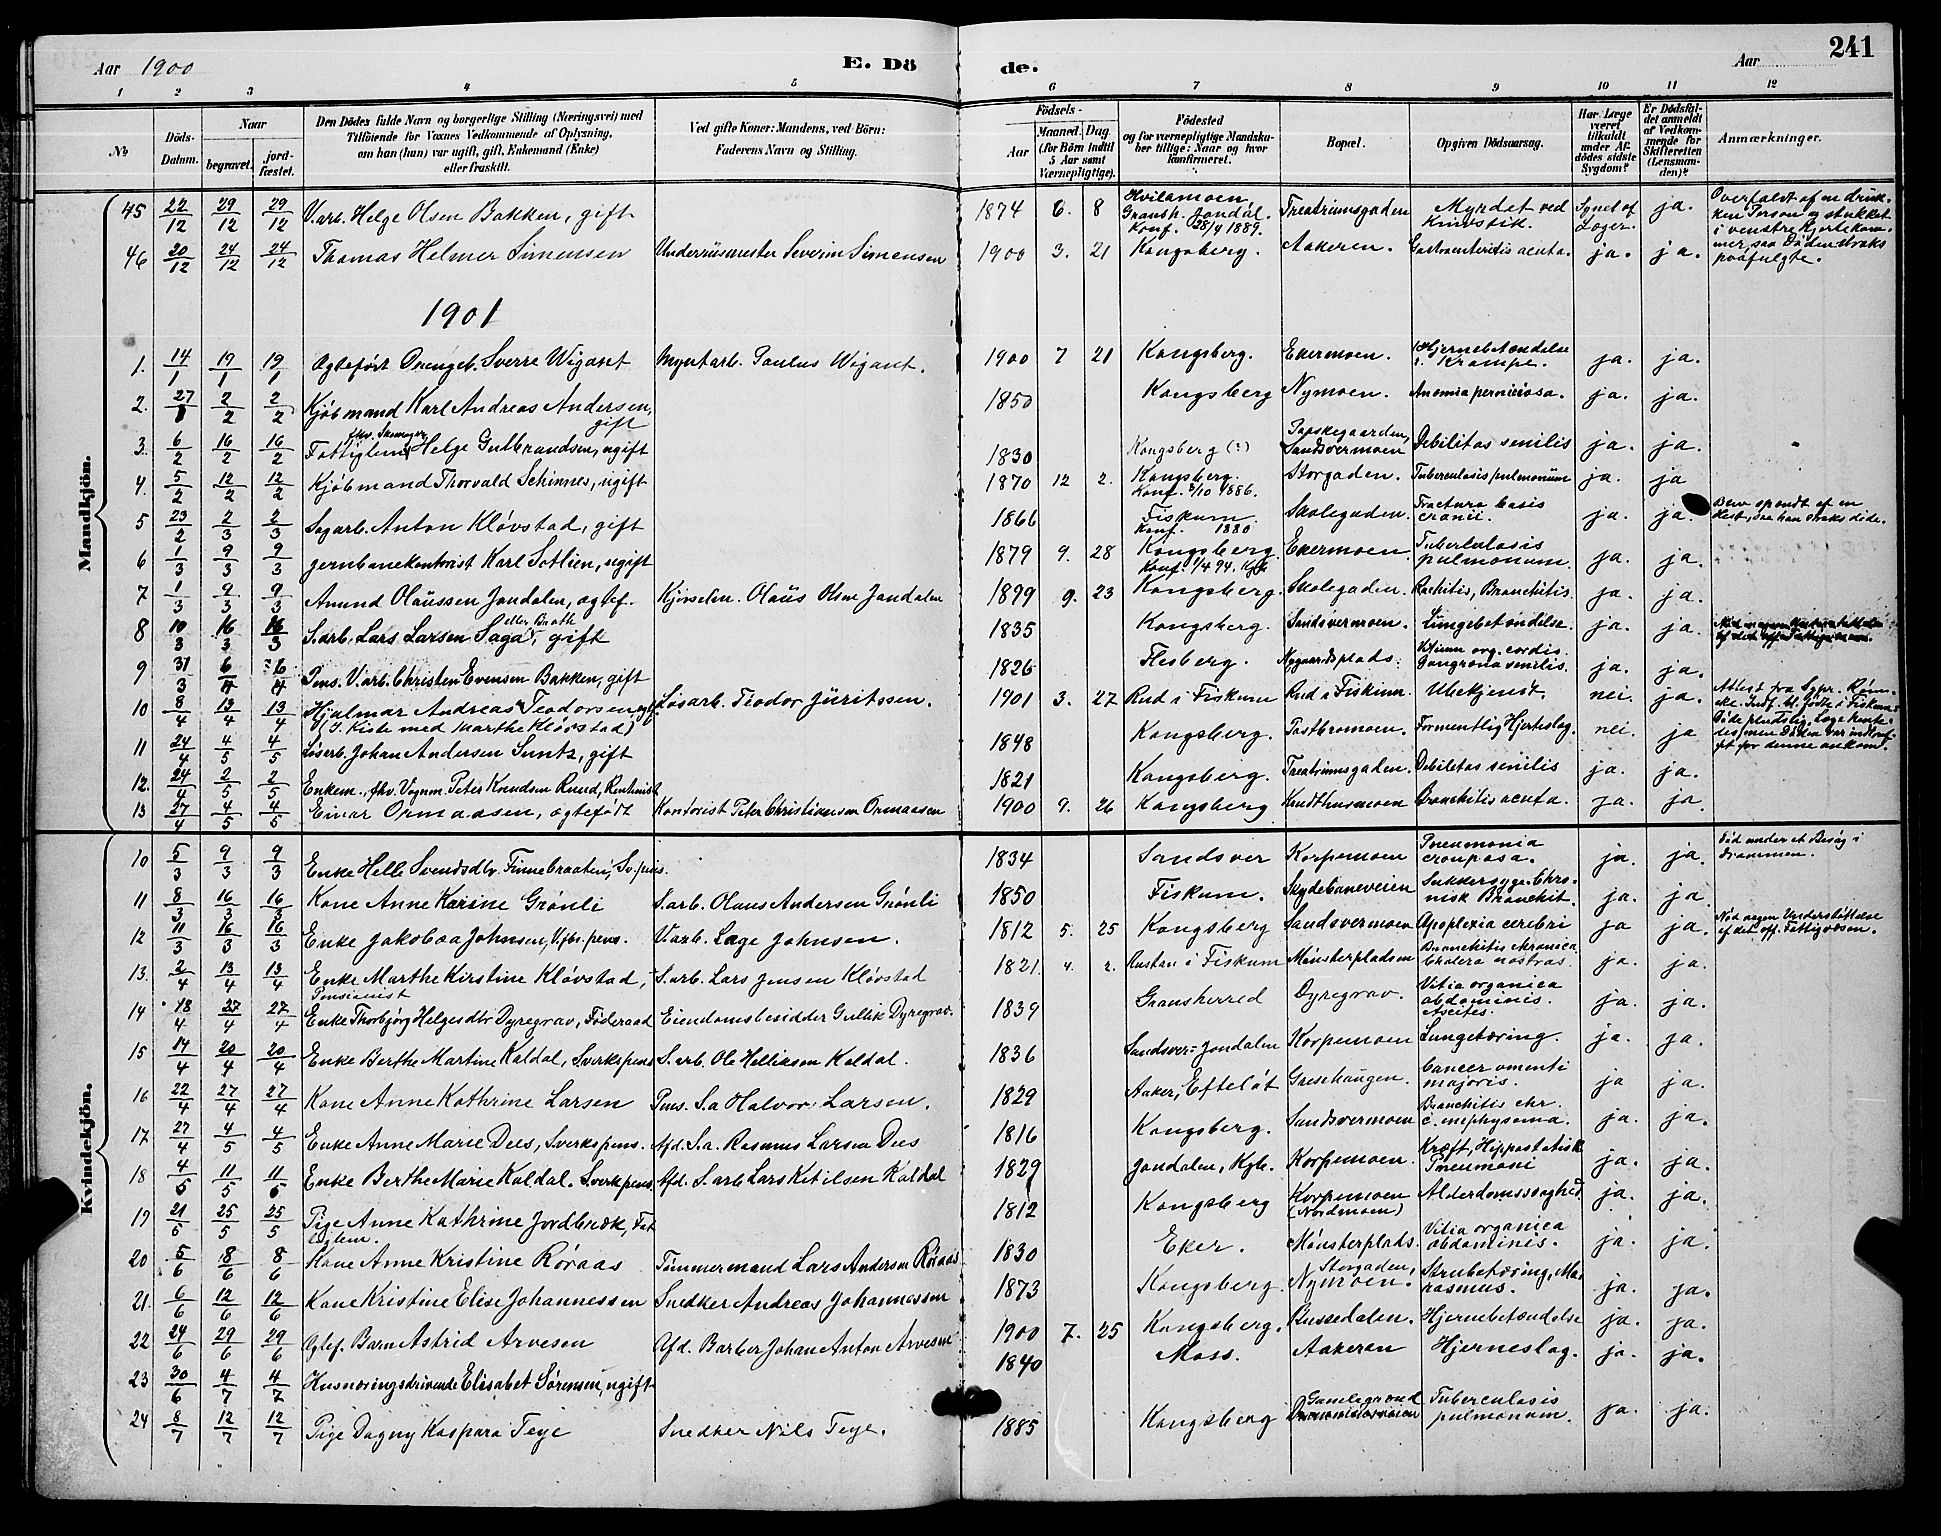 Aar 1900 E. Dö de. Aar 241
1 2 3 4 5 6 7 8 9 10 11 12
№ Döds-Datum. Naar begravet. jord-fæstet. Den Dödes fulde Navn og borgerlige Stilling (Næringsvei) med Tilföiende for Voxnes Vedkommende af Oplysning, om han (hun) var ugift, gift, Enkemand (Enke) eller fraskilt. Ved gifte Koner: Mandens, ved Börn: Faderens Navn og Stilling. Födsels- Aar Maaned. Dag. (for Börn indtil 5 Aar samt Værnepligtige). Födested og for værnepligtige Mandskaber tillige: Naar og hvor konfirmeret. Bopæl. Opgiven Dödsaarsag. Har Læge været tilkaldt under Afdödes sidste Sygdom? Er Dödsfaldet anmeldt af Vedkommende for Skifteretten (Lensmanden)? Anmærkninger.
Mandkjön.
45 22/12 29/12 29/12 V.arb. Helge Olsen Bakken, gift 1874 6. 8 Hvilamoen Gransh. Jondal. Konf. 28/4 1889. Treatriumsgaden Myrdet ved Knivstik. Synet af Læger. ja. Overfaldt af en drukken Person og stukket i venstre Hjertekammer, saa Döden straks paafulgte.
46 20/12 24/12 24/12 Thomas Helmer Simensen Underviismester Severin Simensen 1900 3. 21 Kongsberg. Aakeren. Gastroenteritis acuta. ja. ja.
1901
1. 14/1 19/1 19/1 Ægteført Drengeb. Sverre Wigant Myntarb. Paulus Wigant. 1900 7 21 Kongsberg. Ekermoen. Hjernebetændelse Krampe. ja. ja.
2. 27/1 2/2 2/2 Kjöbmand Karl Andreas Andersen, gift 1850 Kongsberg Nymoen. Anæmia perniciosa. ja. ja.
3. 6/2 16/2 16/2 Fattiglem, fhv. Skomager Helge Gulbrandsen, ugift 1830 Kongsberg (?) Sandsvermoen Debilitas senilis ja. ja.
4. 5/2 12/2 12/2 Kjöbmand Thorvald Schinnes, ugift 1870 12 2. Kongsberg. Konf. 3/10 1886. Storgaden. Tuberculosis pulmonum ja. ja
5 23/2 2/3 2/3 Sagarb. Anton Kløvstad, gift 1866 Fiskum. Konf. 1880 Skolegaden. Fractura basis cranii. ja. ja. Blev spændt af en Hest, saa han straks döde.
6 1/3 9/3 9/3 Jernbanekontorist Karl Sotlien, ugift 1879 9. 28 Kongsberg. Konf. 1/4 94. Kgb Ekermoen. Tuberculosis pulmonum. ja. ja.
7 1/3 9/3 9/3 Amund Olaussen Jondalen, ægtef. Kjöreselm. Olaüs Olsen Jondalen 1899 9. 23 Kongsberg. Skolegaden. Rachitis, Bronchitis. ja. ja.
8 10/3 16/3 16/3 S.arb. Lars Larsen Saga, eller Broth gift 1835 Kongsberg. Sandsvermoen. Lungebetændelse. ja. ja.
9 31/3 6/4 6/4 Pens. V.arb. Christen Evensen Bakken, gift 1826 Flesberg. Nygaardsplads. Vitium org. cordis. Gangræna senilis. ja. ja.
10 8/4 13/4 13/4 Hjalmar Andreas Teodorsen (I Kiste med Marthe Kløvstad) Løsarb. Teodor Jüritssen. 1901 3. 27 Rud i Fiskum Rud i Fiskum. Ubekjendt. nei. ja. Attest fra Sgpr. Indf. bl. födte i Fiskum.
11 24/4 4/5 4/5 Løsarb. Johan Andersen Suntz, gift 1848 Kongsberg. Postbromoen. Formentlig Hjerteslag. nei. ja Döde pludselig. Læge hentedes, men Döden var indtruffet før denne ankom.
12. 24/4 2/5 2/5 Enkem., fhv. Vognm. Peter Knudsen Ruud, Rentenist 1821 Kongsberg. Treatriumsgaden. Debilitas senilis ja. ja.
13 27/4 4/5 4/5 Einar Ormaasen, ægtefødt Kontorist Peter Christiansen Ormaasen 1900 9. 26 Kongsberg Knudthusmoen Bronchitis acuta. ja. ja.
Kvindekjön.
10 5/3 9/3 9/3 Enke Helle Svendsdtr. Finnebraaten, Sv.pens. 1834 Sandsver Korpemoen Pneumonia crouposa. ja. ja. Död under et Besøg i Drammen.
11 8/3 16/3 16/3 Kone Anne Karine Grønli S.arb. Olaus Andersen Grønli 1850 Fiskum. Skydebaneveien Sukkersyge. Chronisk Bronchit. ja. ja.
12 11/3 16/3 16/3 Enke Jakobæa Johnsen, V.fbr. pens. V.arb. Lage Johnsen. 1812 5. 25 Kongsberg Sandsvermoen Apoplexia cerebri ja ja. Nöd ingen Understöttelse af det off. Fattigvæsen.
13. 2/4 13/4 13/4 Enke Marthe Kirstine Kløvstad, Pensionist S.arb. Lars Jensen Kløvstad 1821. 4. 2. Rustan i Fiskum Mønsterpladsen Bronchitis chronica Cholera nostras. ja. ja.
14 18/4 27/4 27/4 Enke Thorbjörg Helgesdtr Dyregrav, Føderaad Eiendomsbesidder Gullik Dyregrav. 1839 Gransherred Dyregrav. Vitia organica abdominis. Ascites. ja. ja.
15 14/4 20/4 20/4 Enke Berthe Martine Kaldal, Sverkspens S.arb. Ole Helliksen Kaldal. 1836 Sandsver-Jondalen Korpemoen Lungetæring. ja. ja.
16 22/4 27/4 27/4 Kone Anne Kathrine Larsen Pens. S.a Halvor Larsen. 1829 Aaker, Efteløt Græshaugen. Cancer omenti majoris. ja ja.
17 27/4 4/5 4/5 Enke Anne Marie Dees, Sverkspens. Afd. S.a. Rasmus Larsen Dees 1816 Kongsberg. Sandsvermoen Bronchitis chr. c. emphysema. ja. ja.
18 4/5 11/5 11/5 Enke Berthe Marie Kaldal. Sverkpens. Afd. S.arb Lars Ketilsen Kaldal 1829 Jondalen, Kgb. Korpemoen. Kræft, Hippostatisk Pneumoni ja. ja.
19 21/5 25/5 25/5 Pige Anne Kathrine Jordbræk, Fattiglem. 1812 Kongsberg Korpemoen (Nordmoen) Alderdomssvaghed. ja. ja.
20 5/6 8/6 8/6 Kone Anne Kristine Røraas Tømmermand Lars Andersen Røraas 1830 Eker. Mønsterplads. Vitia organica abdominis. ja. ja.
21. 6/6 12/6 12/6 Kone Kristine Elise Johannessen Snedker Andreas Johannessen 1873 Kongsberg. Storgaden, Nymoen. Strubetæring, Marasmus. ja. ja.
22 24/6 29/6 29/6 Ægtef. Barn Astrid Arvesen Afd. Barber Johan Anton Arvesen 1900 7. 25 Kongsberg. Bussedalen. Hjernebetændelse ja. ja.
23 30/6 4/7 4/7 Husnæringsdrivende Elisabet Sørensen, ugift 1840 Moss. Aakeren Hjerneslag. ja. ja.
24 8/7 12/7 12/7 Pige Dagny Kaspara Teje Snedker Nils Teje. 1885 Kongsberg Gamlegrænd Drammensveien Tuberculosis pulmonum. ja. ja.